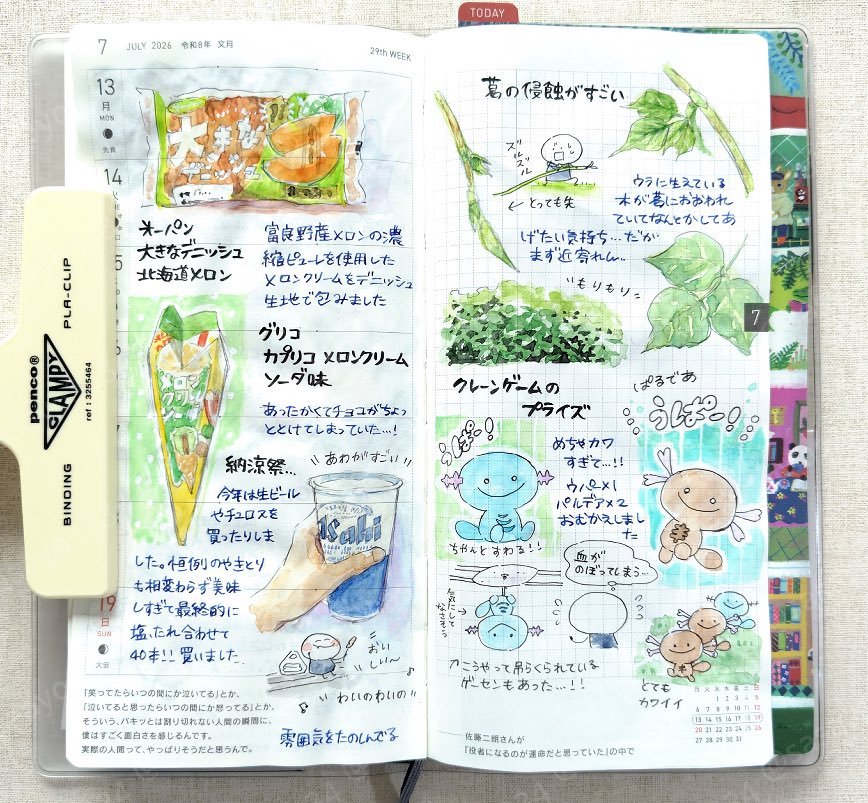 TODAY
7 JULY 2026 令和8年 文月
29th WEEK
13
月
MON
先負
14
19
日
SUN
大安
大きな
デニッシュ
オーパン
大きなデニッシュ
北海道メロン
富良野産メロンの濃
縮ピューレを使用した
メロンクリームをデニッシュ
生地で包みました
グリコ
カプリコ メロンクリーム
ソーダ味
あったかくてチョコがちょっ
ととけてしまっていた…!
メロン
クリーム
ソーダ
納涼祭…
あわがすごい
今年は生ビール
やチュロスを
買ったりしま
した。恒例のやきとり
も相変わらず美味
しすぎて最終的に
塩、たれ合わせて
40本!! 買いました
Asahi
おい
しい〜
わいのわいの
雰囲気をたのしんでる
「笑ってたらいつの間にか泣いてる」とか、
「泣いてると思ったらいつの間にか怒ってる」とか、
そういう、パキッとは割り切れない人間の瞬間に、
僕はすごく面白さを感じるんです。
実際の人間って、やっぱりそうだと思うんで。
葛の侵蝕がすごい
ズルズル
ズル
← とっても先
ウラに生えている
木が葛におおわれ
ていてなんとかしてあ
げたい気持ち…だが
まず近寄れん…
もりもり
7
クレーンゲームの
プライズ
うぱー!
ちゃんとすわる!!
めちゃカワ
すぎて…!!
ウパ×1
パルデア×2
おむかえしまし
た
ぱるであ
うぱー!
気にして
なさそう
血が
のぼってしまう…
↑こうやって吊らくられている
ゲーセンもあった…!!
とても
カワイイ
月 火 水 木 金 土 日
1 2 3 4 5
6 7 8 9 10 11 12
13 14 15 16 17 18 19
20 21 22 23 24 25 26
27 28 29 30 31
――佐藤二朗さんが
『役者になるのが運命だと思っていた』の中で
PLA-CLIP
penco®
CLAMPY
ref : 3255464
BINDING